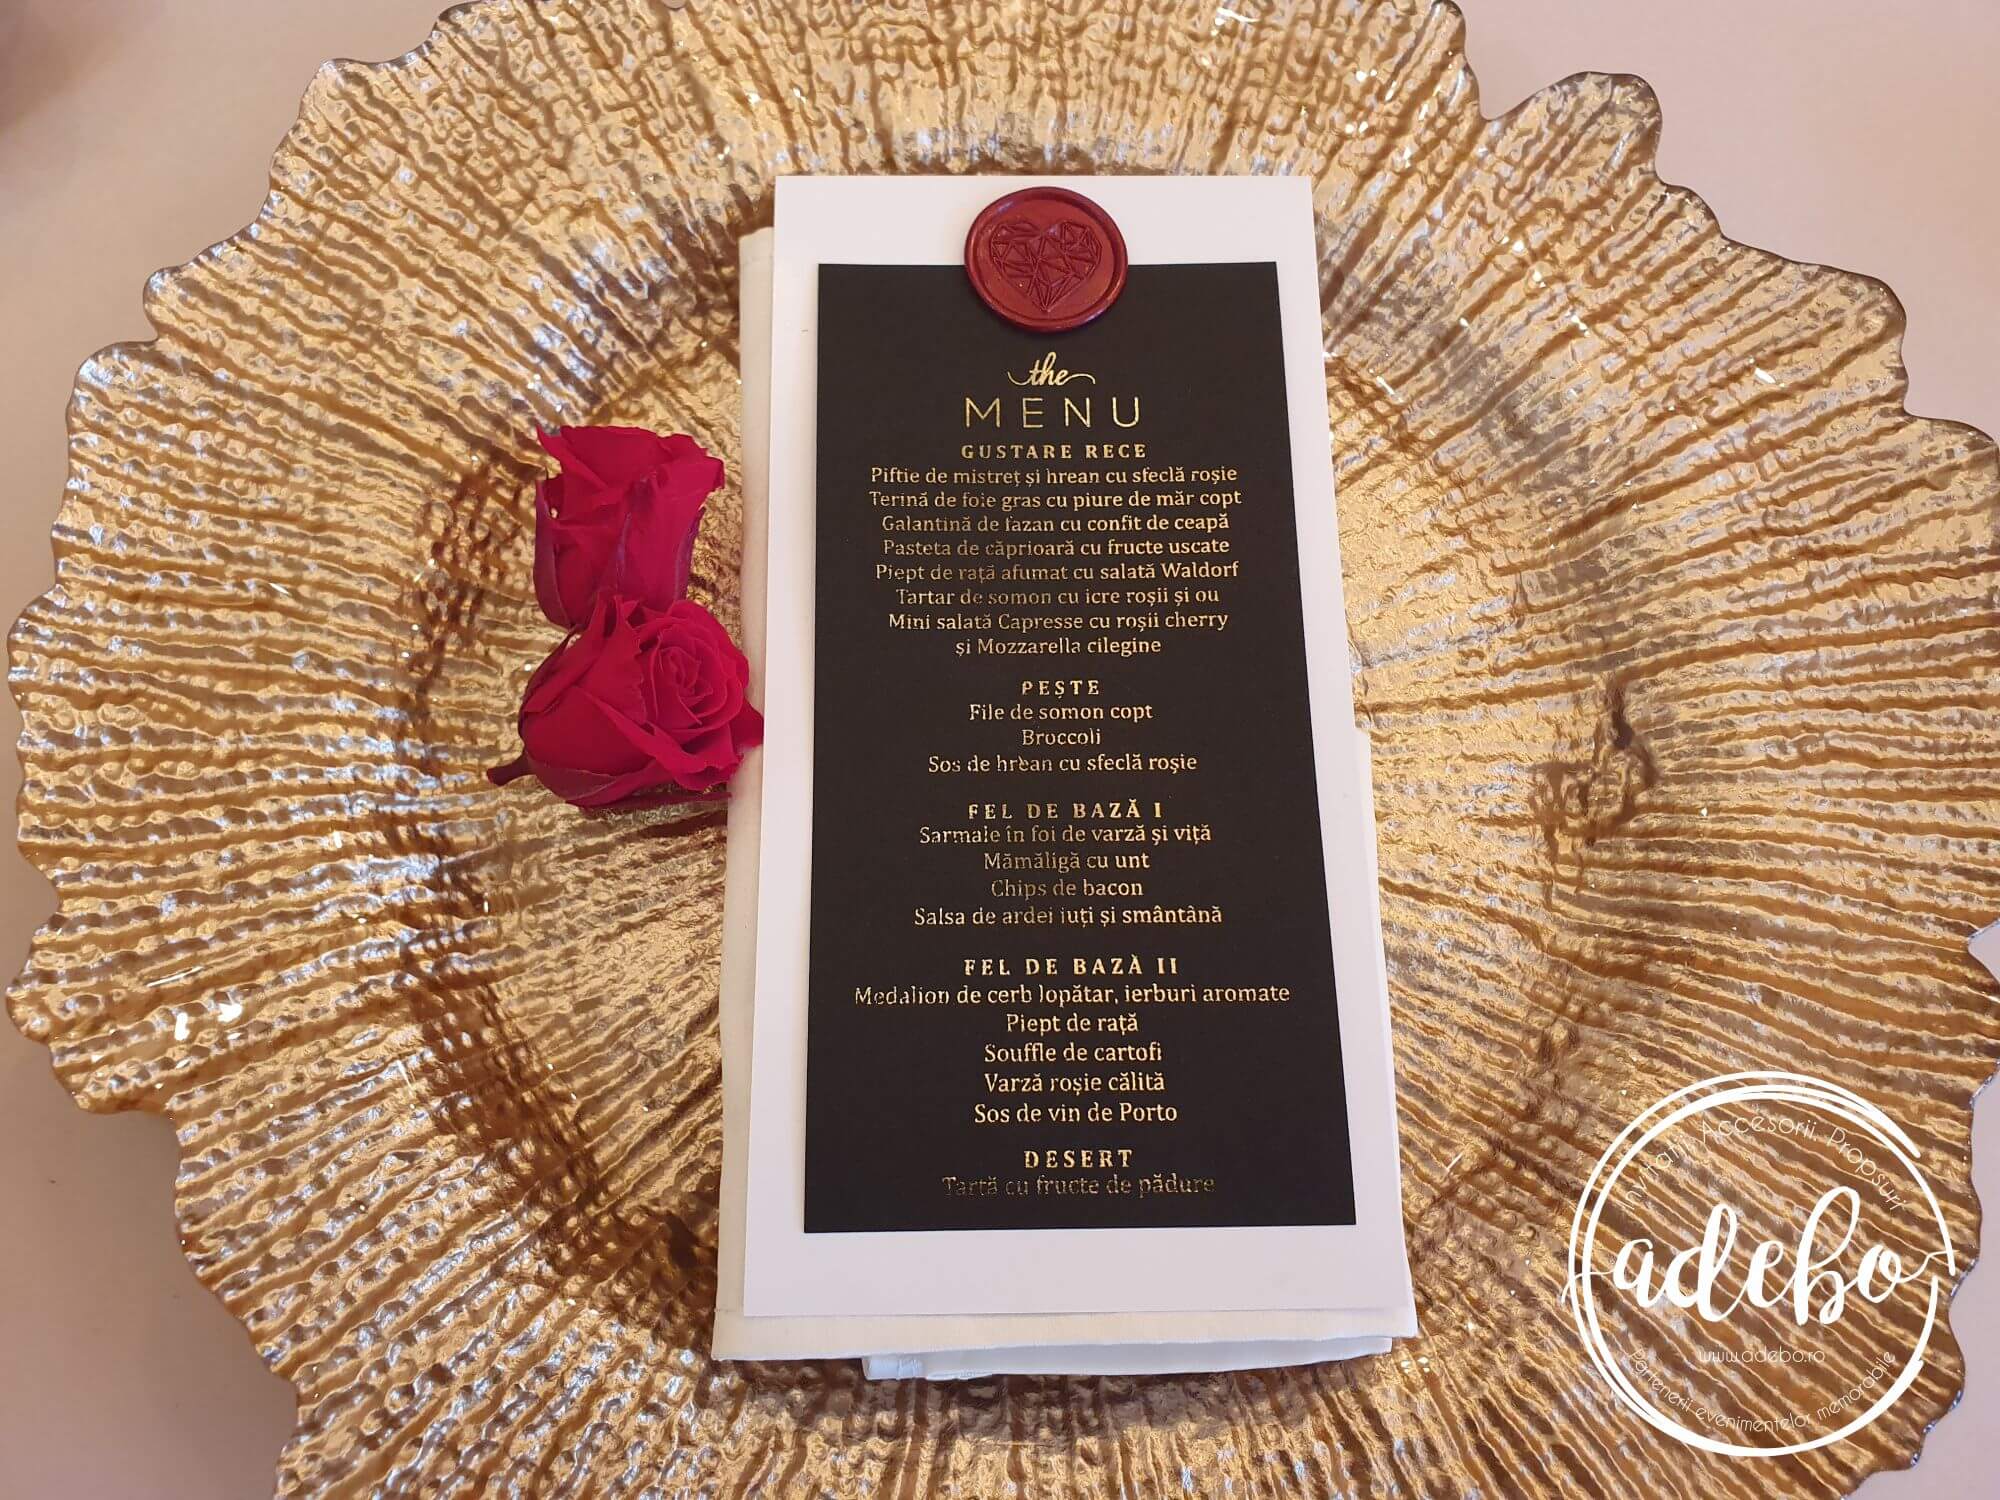 the
MENU
GUSTARE RECE
Piftie de mistreț și hrean cu sfeclă roșie
Terină de foie gras cu piure de măr copt
Galantină de fazan cu confit de ceapă
Pasteta de căprioară cu fructe uscate
Piept de rață afumat cu salată Waldorf
Tartar de somon cu icre roșii și ou
Mini salată Capresse cu roșii cherry
și Mozzarella cilegine
PEȘTE
File de somon copt
Broccoli
Sos de hrean cu sfeclă roșie
FEL DE BAZĂ I
Sarmale în foi de varză și viță
Mămăligă cu unt
Chips de bacon
Salsa de ardei iuți și smântână
FEL DE BAZĂ II
Medalion de cerb lopătar, ierburi aromate
Piept de rață
Souffle de cartofi
Varză roșie călită
Sos de vin de Porto
DESERT
Tartă cu fructe de pădure
Invitații. Accesorii. Propsuri
adebo
www.adebo.ro
Partenerii evenimentelor memorabile